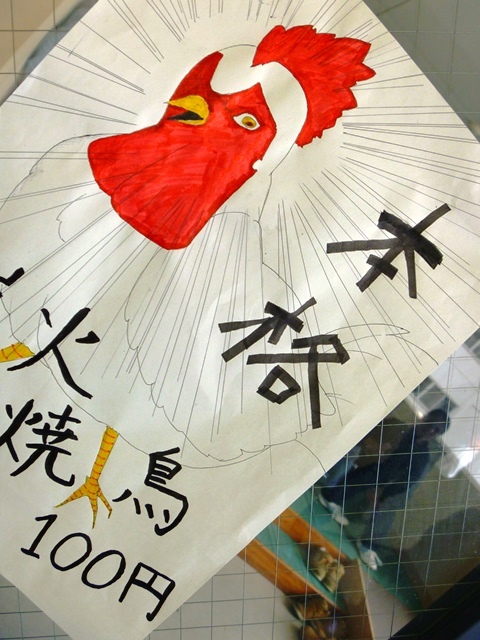 本格
火
焼鳥
100円